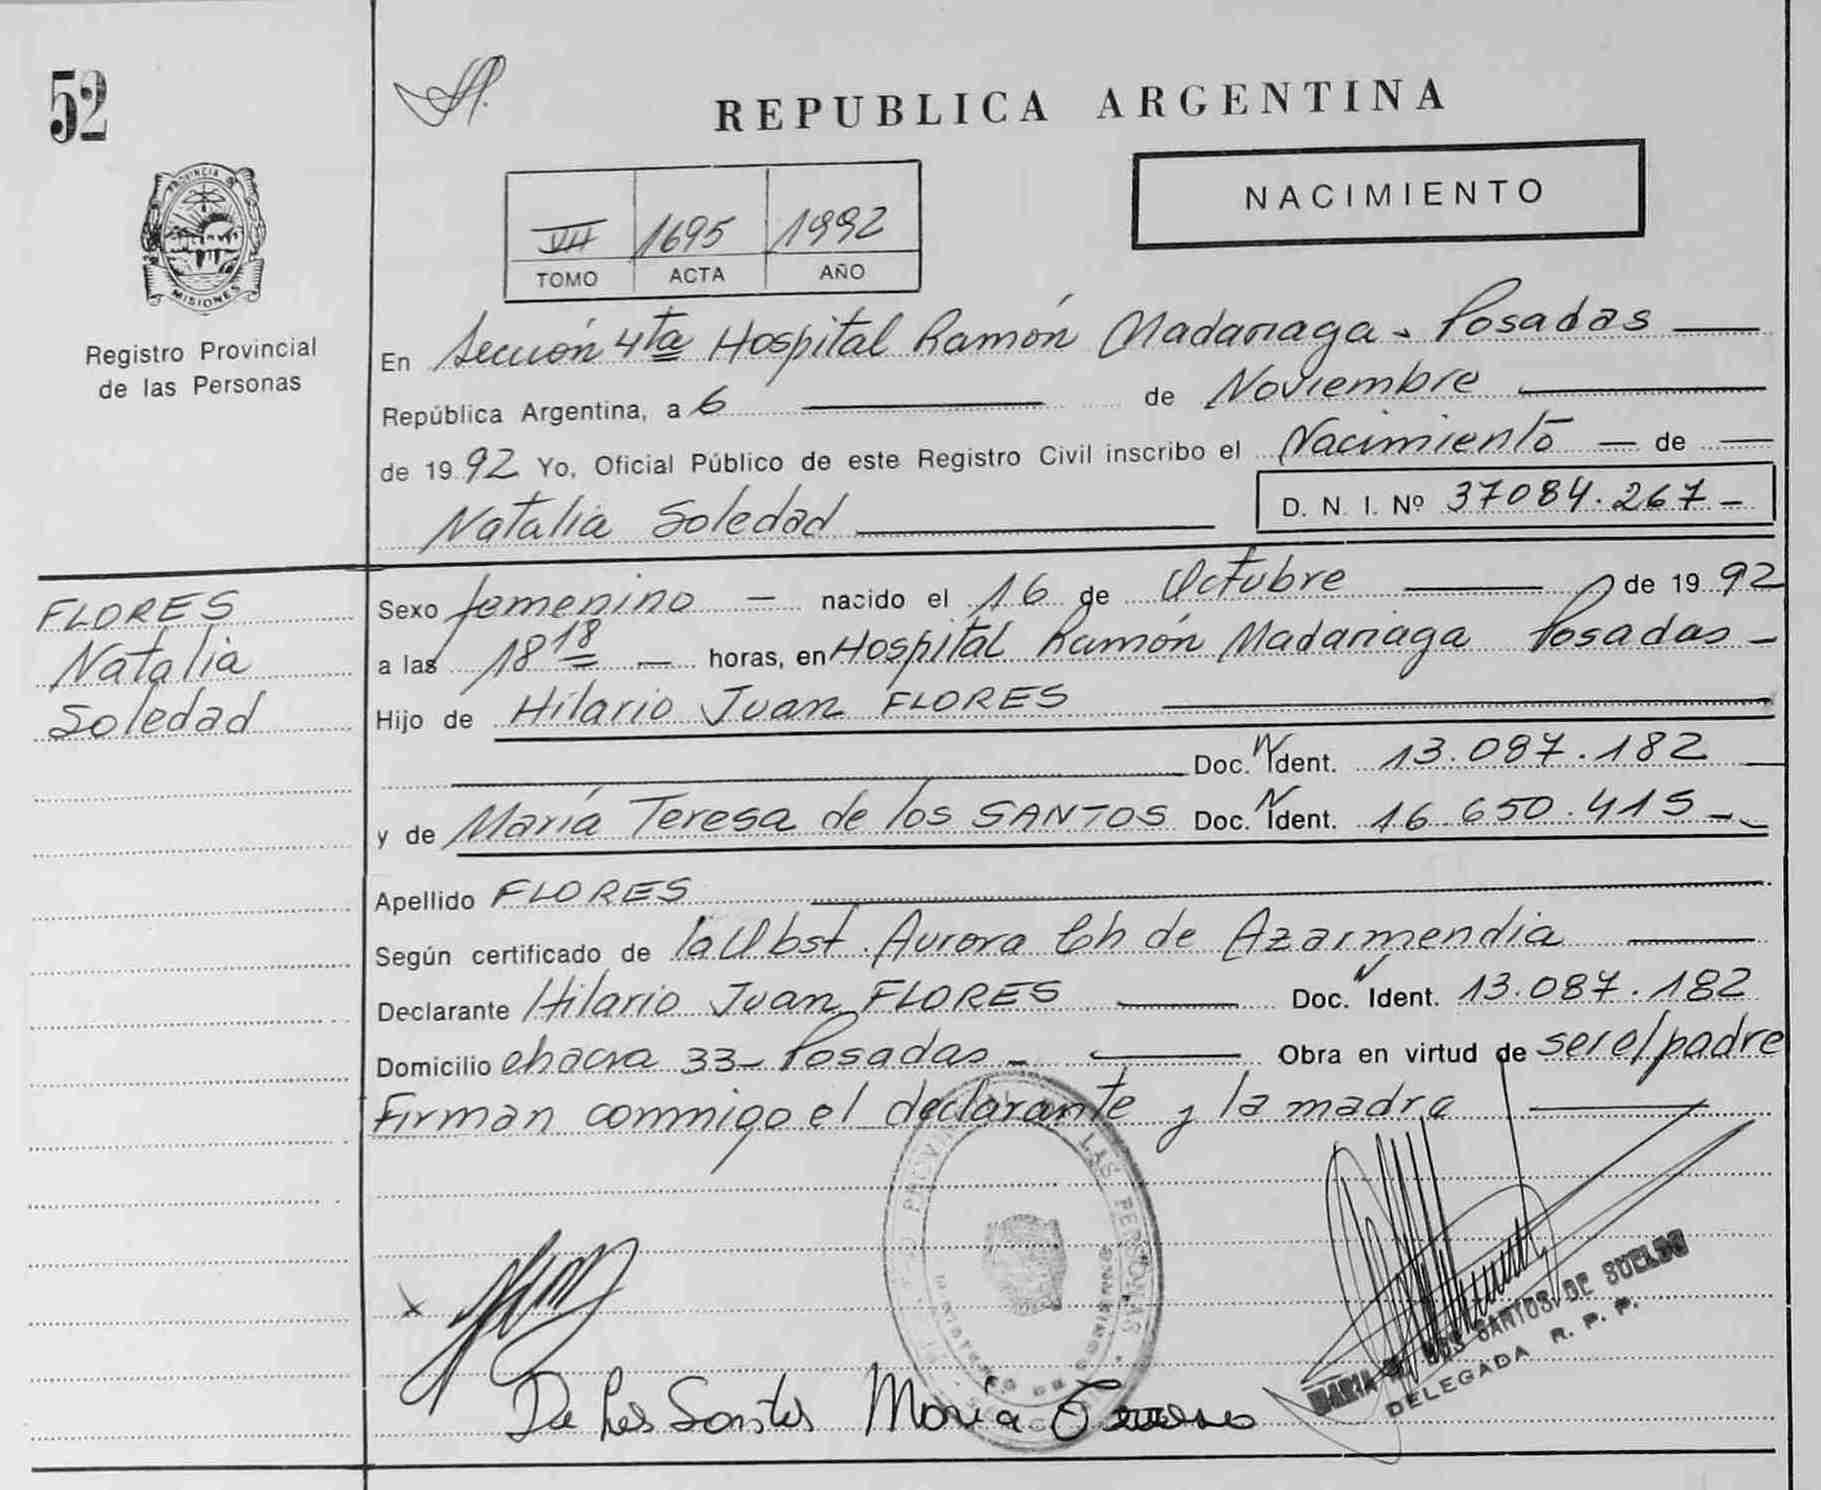 52
REPUBLICA ARGENTINA
NACIMIENTO
VII 1695 1992
TOMO ACTA AÑO
PROVINCIA DE
MISIONES
Registro Provincial
de las Personas
En Sección 4ta Hospital Ramón Madariaga - Posadas
República Argentina, a 6 de Noviembre
de 1992 Yo, Oficial Público de este Registro Civil inscribo el Nacimiento de
Natalia Soledad D. N. I. Nº 37084.267-
FLORES
Natalia
Soledad
Sexo femenino - nacido el 16 de Octubre de 1992
a las 18 18 horas, en Hospital Ramón Madariaga Posadas-
Hijo de Hilario Juan FLORES
Doc. N Ident. 13.087.182
y de María Teresa de los SANTOS Doc. N Ident. 16.650.415-
Apellido FLORES
Según certificado de la Obst. Aurora Ch de Azarmendia
Declarante Hilario Juan FLORES Doc. N Ident. 13.087.182
Domicilio chacra 33- Posadas- Obra en virtud de ser el padre
Firman conmigo el declarante y la madre
LAS PERSONAS
De Los Santos María
SANTOS DE SUELDO
DELEGADA R. P. P.